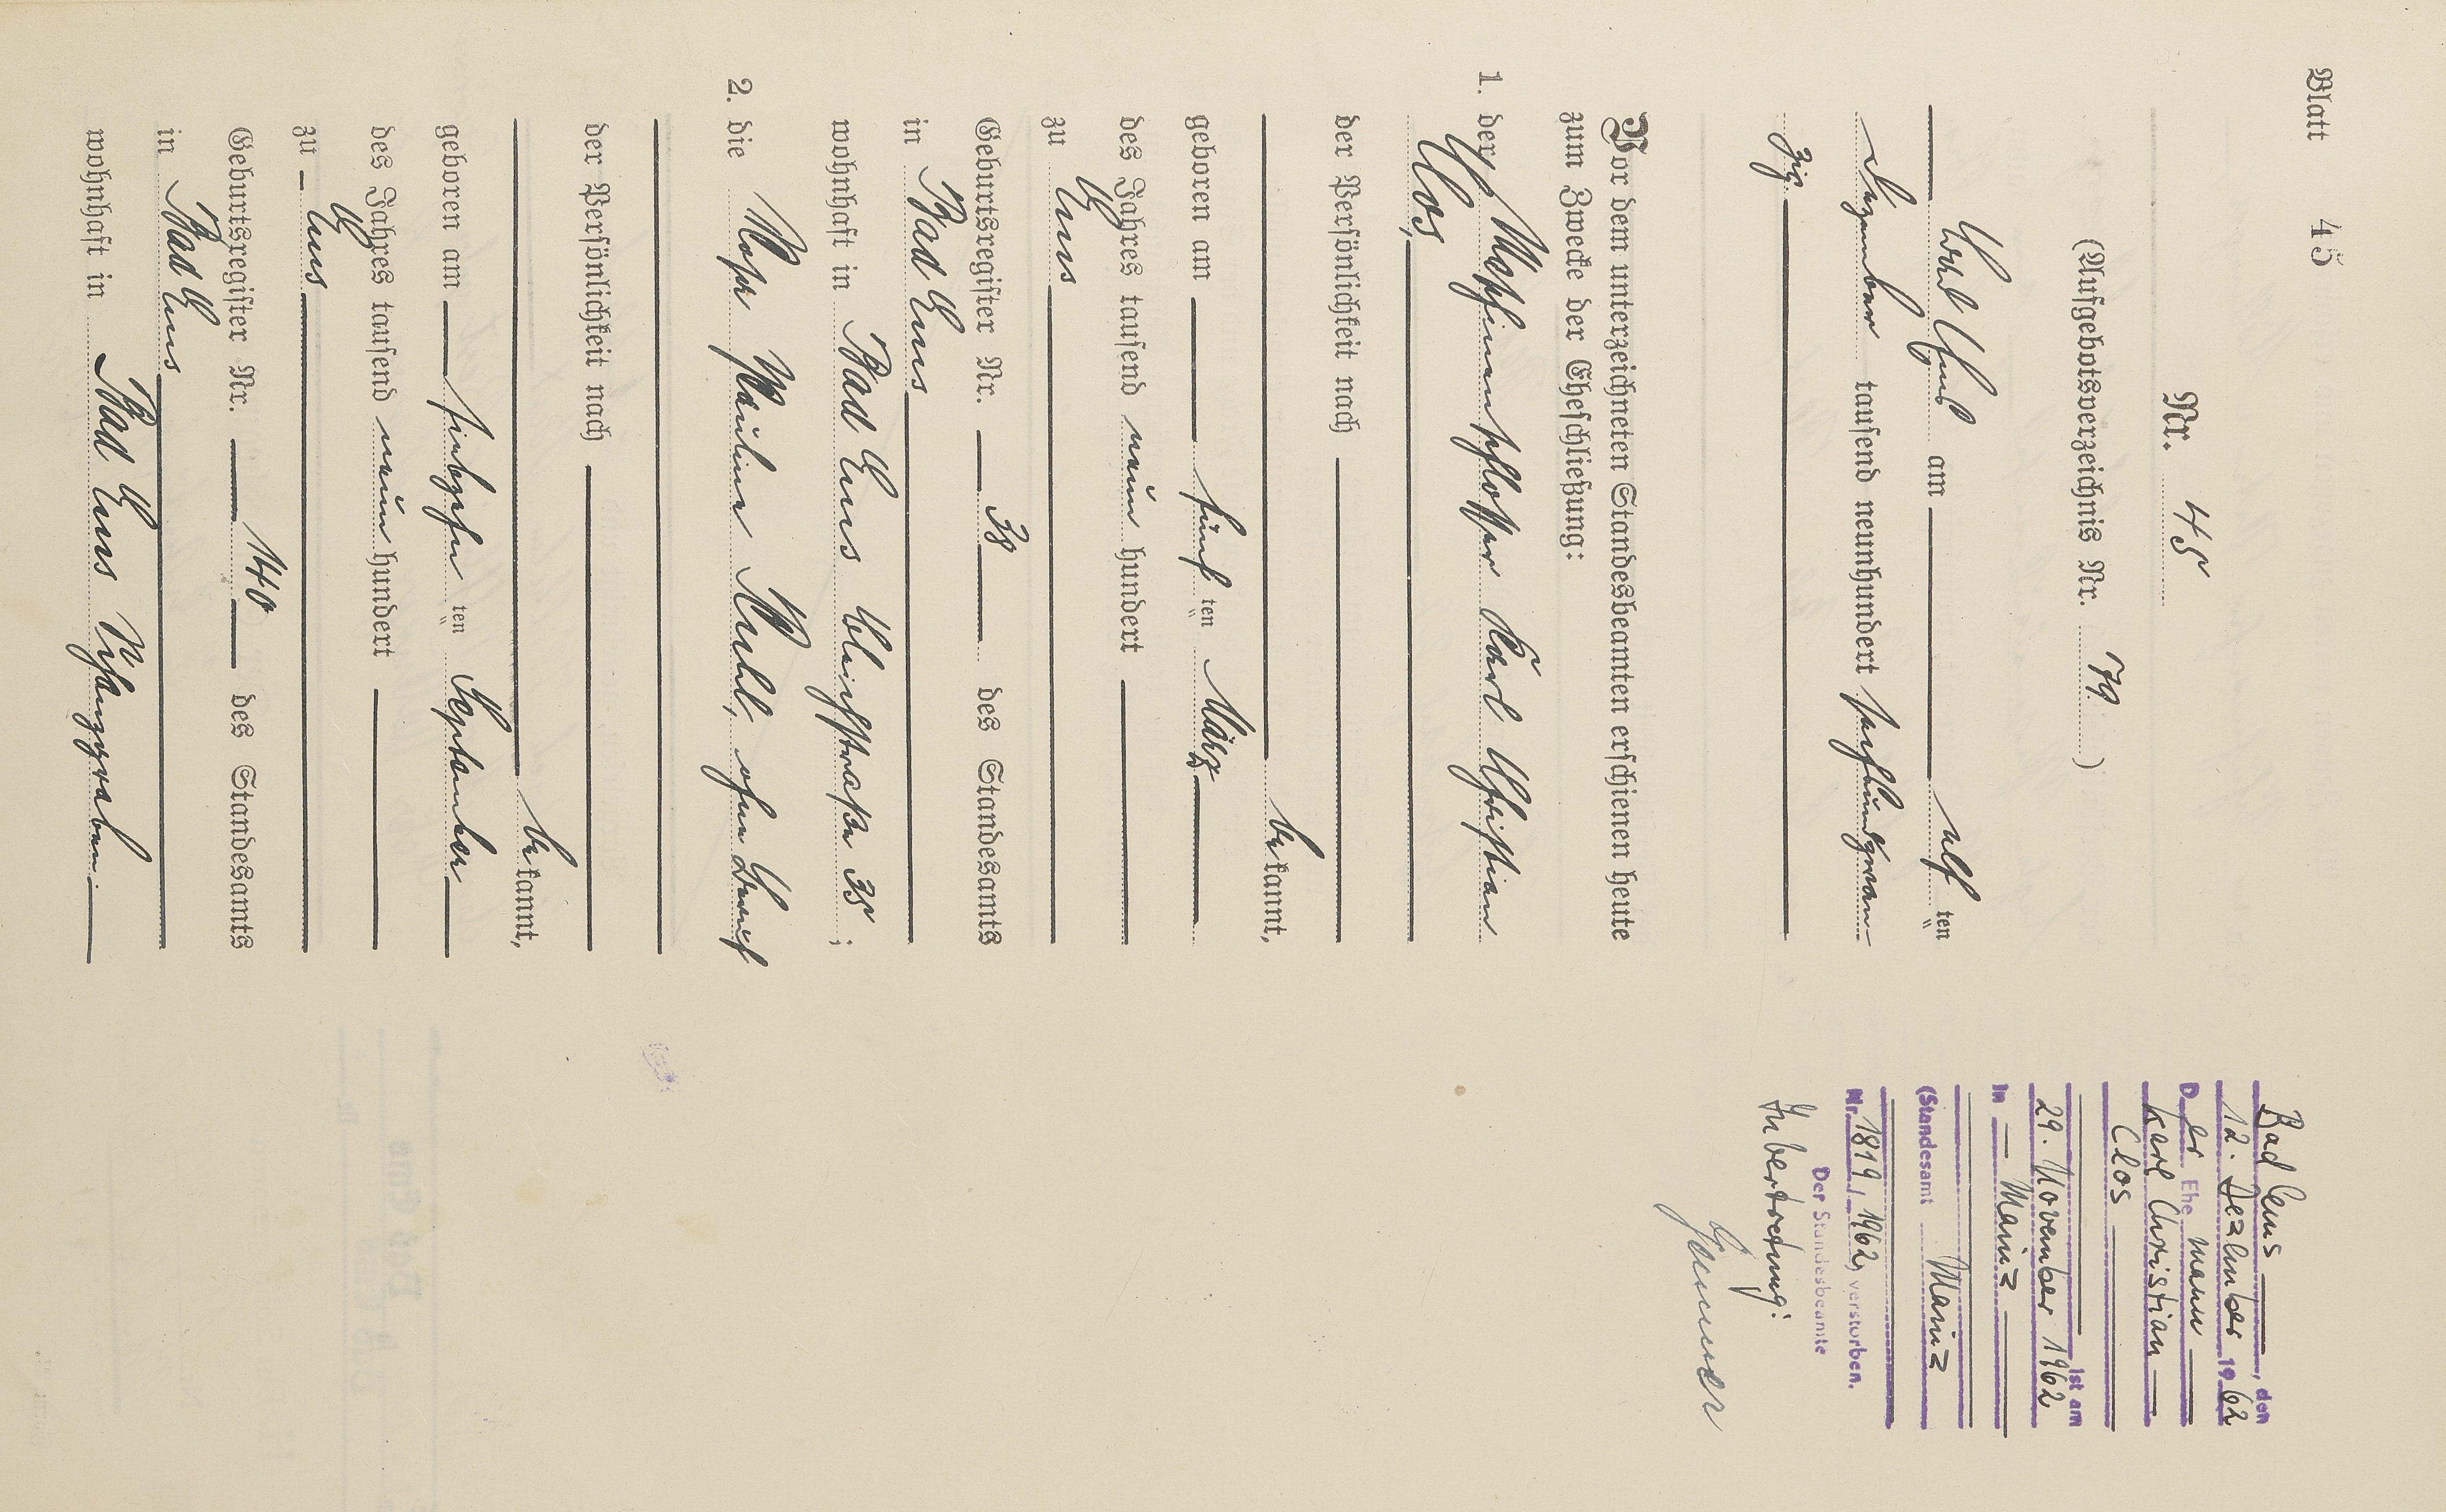 Blatt 45
Nr. 45
(Aufgebotsverzeichnis Nr. 79)
Bad Ems am elf ten
Dezember tausend neunhundert sechsundzwan-
zig.
Vor dem unterzeichneten Standesbeamten erschienen heute
zum Zwecke der Eheschließung:
1. der Maschinenschlosser Karl Christian
Clos,
der Persönlichkeit nach
be kannt,
geboren am fünf ten März
des Jahres tausend neun hundert
zu Ems
Geburtsregister Nr. 38 des Standesamts
in Bad Ems
wohnhaft in Bad Ems Bleichstraße 35;
2. die Rosa Pauline ohne Beruf
der Persönlichkeit nach
be kannt,
geboren am siebzehn ten September
des Jahres tausend neun hundert
zu Ems
Geburtsregister Nr. 140 des Standesamts
in Bad Ems
wohnhaft in Bad Ems
Bad Ems, den
12. Dezember 1962
Der Ehemann
Karl Christian
Clos
ist am
29. November 1962
in Mainz
(Standesamt Mainz
Nr. 1819/1962) verstorben.
Der Standesbeamte
In Vertretung: